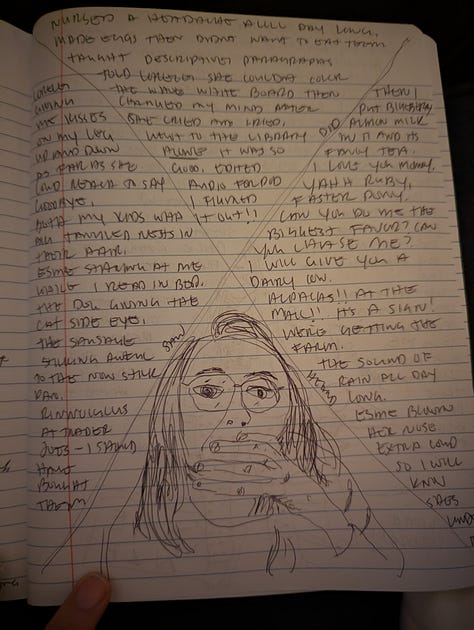 NURSED A HEADACHE ALLL DAY LONG.
MADE EGGS THEN DIDNT WANT TO EAT THEM
TAUGHT DESCRIPTIVE PARAGRAPHS
TOLD LORELEI SHE COULDNT COLOR
THE WHITE BOARD THEN
CHANGED MY MIND AFTER
SHE CRIED AND CRIED.
WENT TO THE LIBRARY
ALONE IT WAS SO
GOOD. EDITED
AUDIO FOR POD
I FIGURED
IT OUT!!
DID
LORELEI
GIVING
ME KISSES
ON MY LEG
UP AND DOWN
AS FAR AS SHE
COULD REACH TO SAY
GOODBYE.
BOTH MY KIDS
TANGLED NESTS IN
THEIR HAIR.
ESME STARING AT ME
WHILE I READ IN BED.
THE DOG GIVING THE
CAT SIDE EYE.
THE SAUSAGE
STICKING AWFUL
TO THE NON STICK
PAN.
RANUNCULUS
AT TRADER
JOES - I SHOULD
HAVE
BOUGHT
THEM
SAW
THEN I
PUT BLUEBERRY
ALMOND MILK
IN IT AND ITS
FANCY TEA.
I LOVE YOU MOMMY.
YAHH RUBY,
FASTER PONY.
CAN YOU DO ME THE
BIGGEST FAVOR? CAN
YOU CHASE ME?
I WILL GIVE YOU A
DAIRY COW.
ALPACAS!! AT THE
MALL!! IT'S A SIGN!
WERE GETTING THE
FARM.
THE SOUND OF
RAIN ALL DAY
LONG.
ESME BLOWN
HER NOSE
EXTRA LOUD
SO I WILL
KNOW
SHES
HEARD